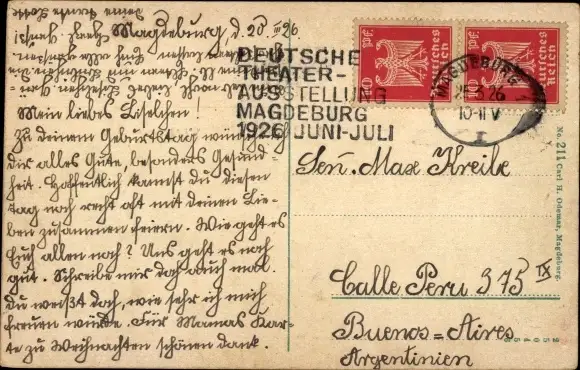 Magdeburg, d. 20. III 26.
Mein liebes Liselchen!
Zu deinem Geburtstag wünsche
dir alles Gute, besonders Gesund-
heit. Hoffentlich kannst du diesen
Tag noch recht oft mit deinen Lie-
ben zusammen feiern. Wie geht es
Euch allen noch? Uns geht es noch
gut. Schreibe mir doch auch mal.
Du weißt doch, wie sehr ich mich
freuen würde. Für Mamas Kar-
te zu Weihnachten schönen Dank.
DEUTSCHE
THEATER-
AUSSTELLUNG
MAGDEBURG
1926 JUNI-JULI
10 PF.
Deutsches
Reich
10 PF.
Deutsches
Reich
MAGDEBURG
25.3.26
10-11 V
1
Señ. Max Kreibe
Calle Peru 375 IX
Buenos-Aires
Argentinien
No. 211 Carl H. Odemar, Magdeburg.